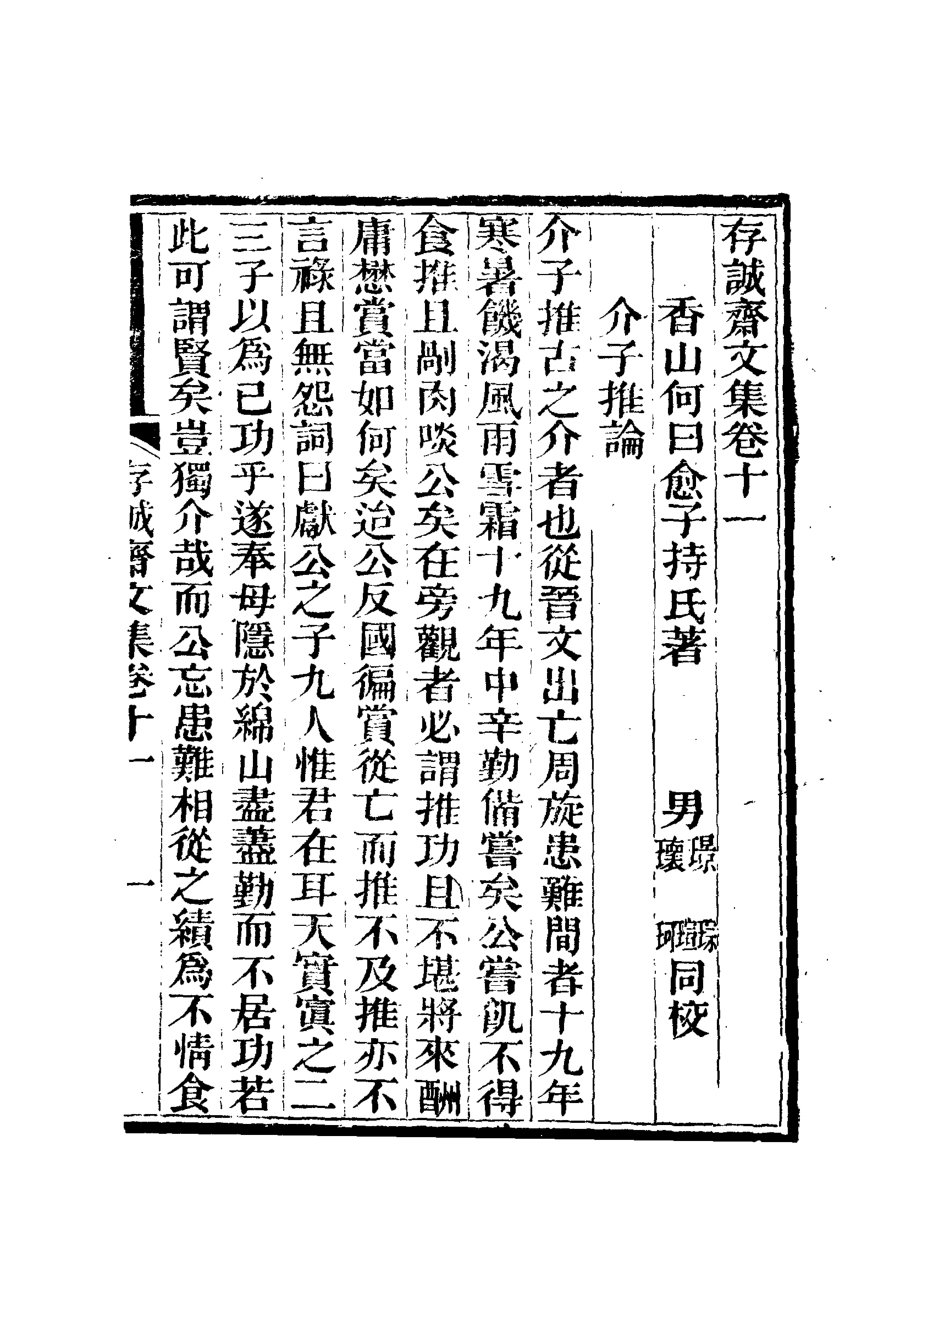 存誠齋文集卷十一
香山何曰愈子持氏著 男 璟 瓌 同校
介子推論
介子推古之介者也從晉文出亡周旋患難間者十九年
寒暑饑渴風雨雪霜十九年中辛勤備嘗矣公嘗飢不得
食推且剮肉啖公矣在旁觀者必謂推功且不堪將來酬
庸懋賞當如何矣迨公反國徧賞從亡而推不及推亦不
言祿且無怨詞曰獻公之子九人惟君在耳天實寘之二
三子以為已功乎遂奉母隱於綿山盡藎勤而不居功若
此可謂賢矣豈獨介哉而公忘患難相從之績為不情食
存誠齋文集卷十一 一